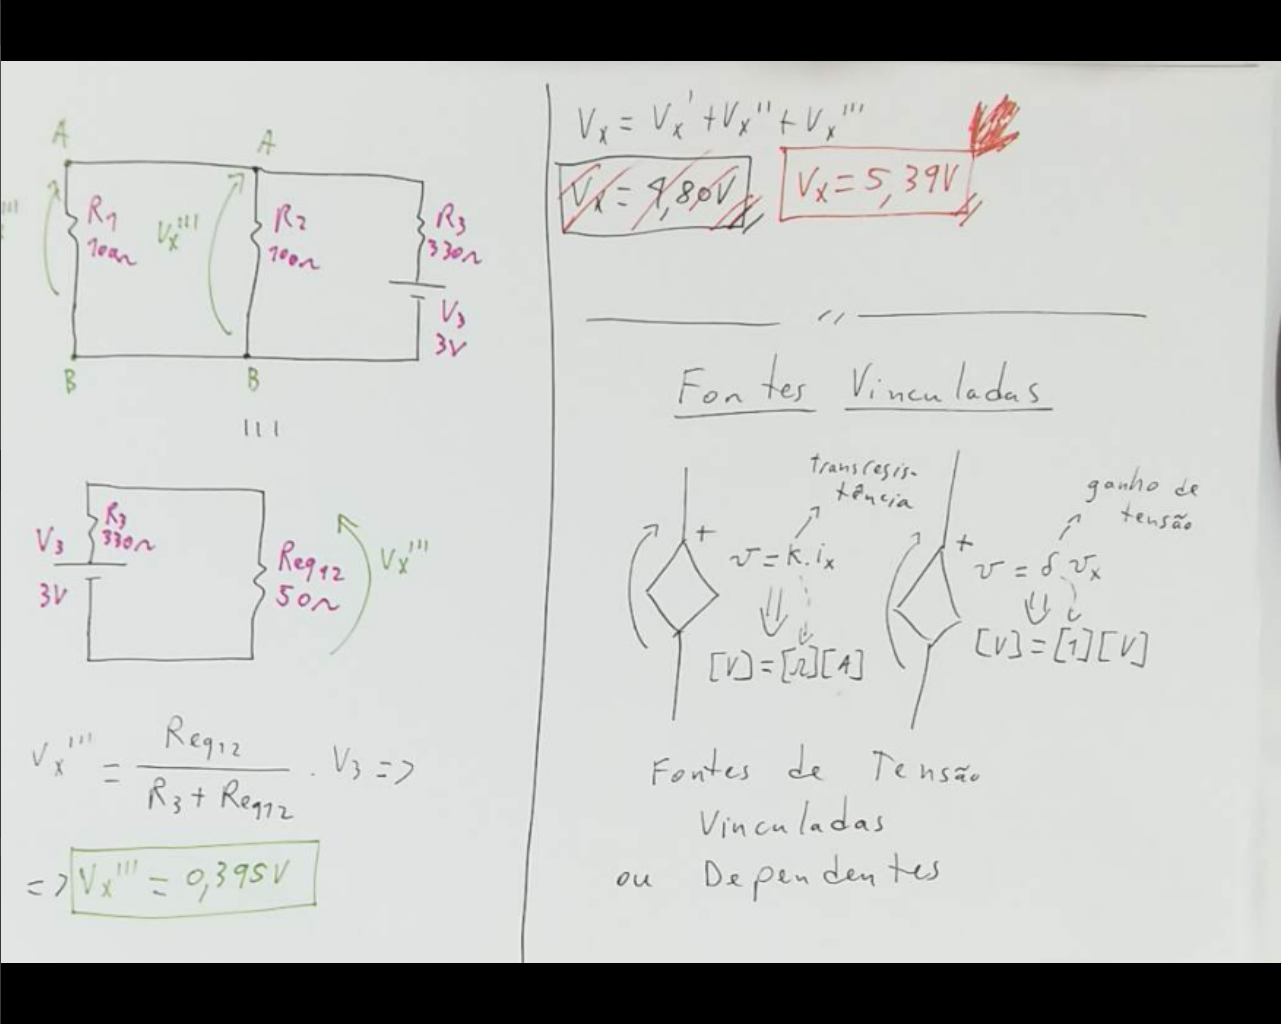 A
A
Vx'''
R1
100Ω
R2
100Ω
R3
330Ω
V3
3V
B
B
III
V3
3V
R3
330Ω
Req12
50Ω
Vx'''
Vx''' = Req12 / (R3 + Req12) . V3 =>
=> Vx''' = 0,395V
Vx = Vx' + Vx'' + Vx'''
Vx = 4,80V
Vx = 5,39V
Fontes Vinculadas
transresis-
tência
+
v = k.ix
[V]=[Ω][A]
ganho de
tensão
+
v = δ vx
[V]=[1][V]
Fontes de Tensão
Vinculadas
ou Dependentes